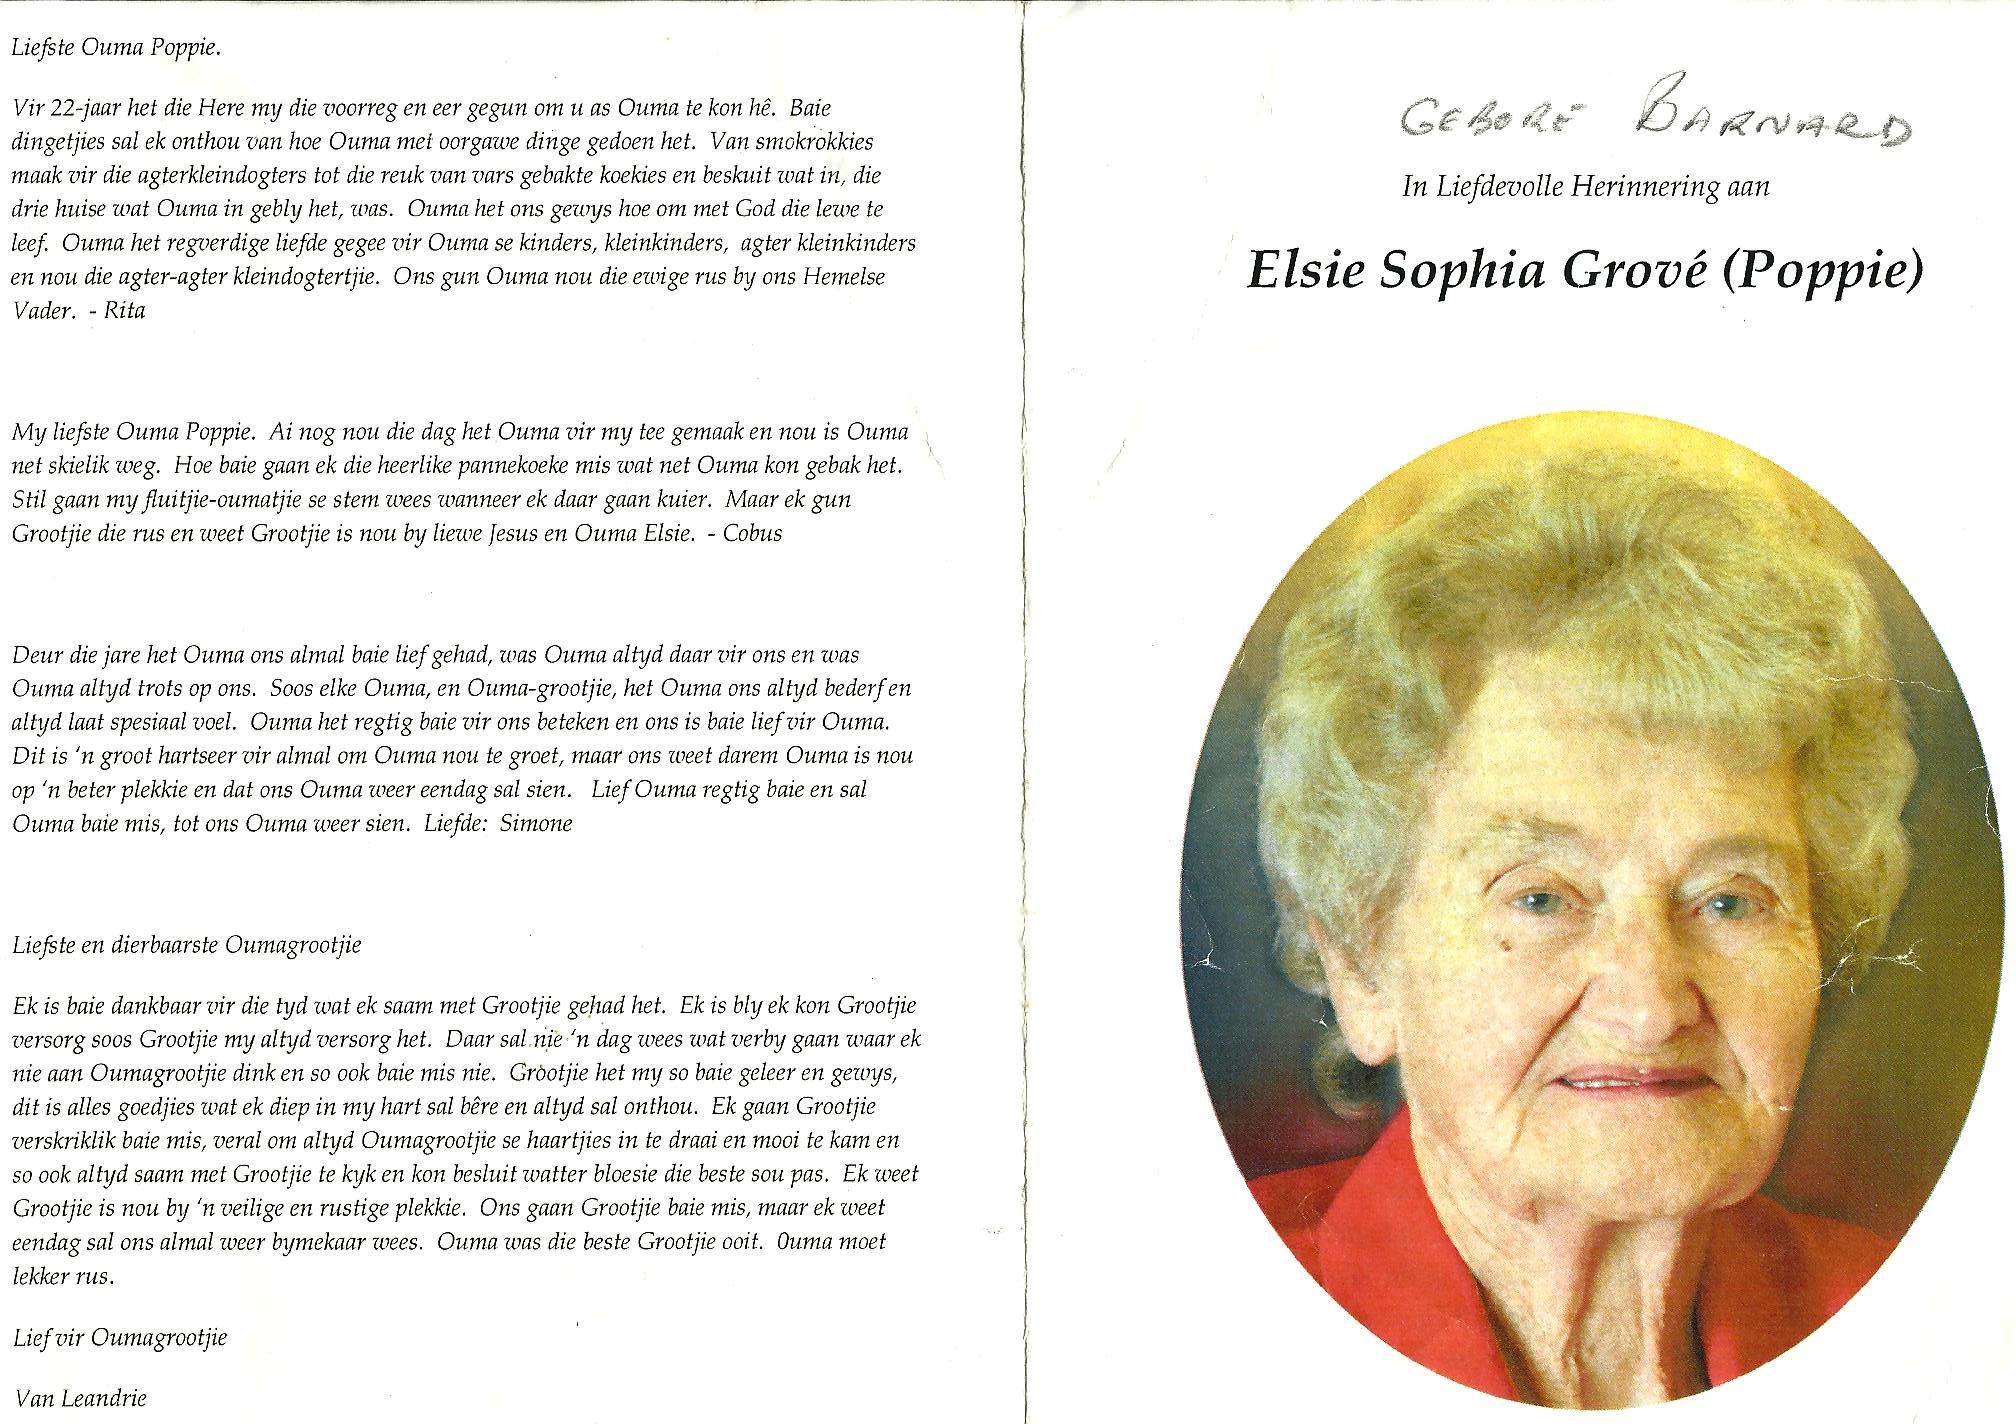 Liefste Ouma Poppie.
Vir 22-jaar het die Here my die voorreg en eer gegun om u as Ouma te kon hê.  Baie
dingetjies sal ek onthou van hoe Ouma met oorgawe dinge gedoen het.  Van smokrokkies
maak vir die agterkleindogters tot die reuk van vars gebakte koekies en beskuit wat in, die
drie huise wat Ouma in gebly het, was.  Ouma het ons gewys hoe om met God die lewe te
leef.  Ouma het regverdige liefde gegee vir Ouma se kinders, kleinkinders,  agter kleinkinders
en nou die agter-agter kleindogtertjie.  Ons gun Ouma nou die ewige rus by ons Hemelse
Vader.  - Rita
My liefste Ouma Poppie.  Ai nog nou die dag het Ouma vir my tee gemaak en nou is Ouma
net skielik weg.  Hoe baie gaan ek die heerlike pannekoeke mis wat net Ouma kon gebak het.
Stil gaan my fluitjie-oumatjie se stem wees wanneer ek daar gaan kuier.  Maar ek gun
Grootjie die rus en weet Grootjie is nou by liewe Jesus en Ouma Elsie.  - Cobus
Deur die jare het Ouma ons almal baie lief gehad, was Ouma altyd daar vir ons en was
Ouma altyd trots op ons.  Soos elke Ouma, en Ouma-grootjie, het Ouma ons altyd bederf en
altyd laat spesiaal voel.  Ouma het regtig baie vir ons beteken en ons is baie lief vir Ouma.
Dit is ‘n groot hartseer vir almal om Ouma nou te groet, maar ons weet darem Ouma is nou
op ‘n beter plekkie en dat ons Ouma weer eendag sal sien.   Lief Ouma regtig baie en sal
Ouma baie mis, tot ons Ouma weer sien.  Liefde:  Simone
Liefste en dierbaarste Oumagrootjie
Ek is baie dankbaar vir die tyd wat ek saam met Grootjie gehad het.  Ek is bly ek kon Grootjie
versorg soos Grootjie my altyd versorg het.  Daar sal nie ‘n dag wees wat verby gaan waar ek
nie aan Oumagrootjie dink en so ook baie mis nie.  Grootjie het my so baie geleer en gewys,
dit is alles goedjies wat ek diep in my hart sal bêre en altyd sal onthou.  Ek gaan Grootjie
verskriklik baie mis, veral om altyd Oumagrootjie se haartjies in te draai en mooi te kam en
so ook altyd saam met Grootjie te kyk en kon besluit watter bloesie die beste sou pas.  Ek weet
Grootjie is nou by ‘n veilige en rustige plekkie.  Ons gaan Grootjie baie mis, maar ek weet
eendag sal ons almal weer bymekaar wees.  Ouma was die beste Grootjie ooit.  0uma moet
lekker rus.
Lief vir Oumagrootjie
Van Leandrie
GEBORÉ BARNARD
In Liefdevolle Herinnering aan
Elsie Sophia Grové (Poppie)